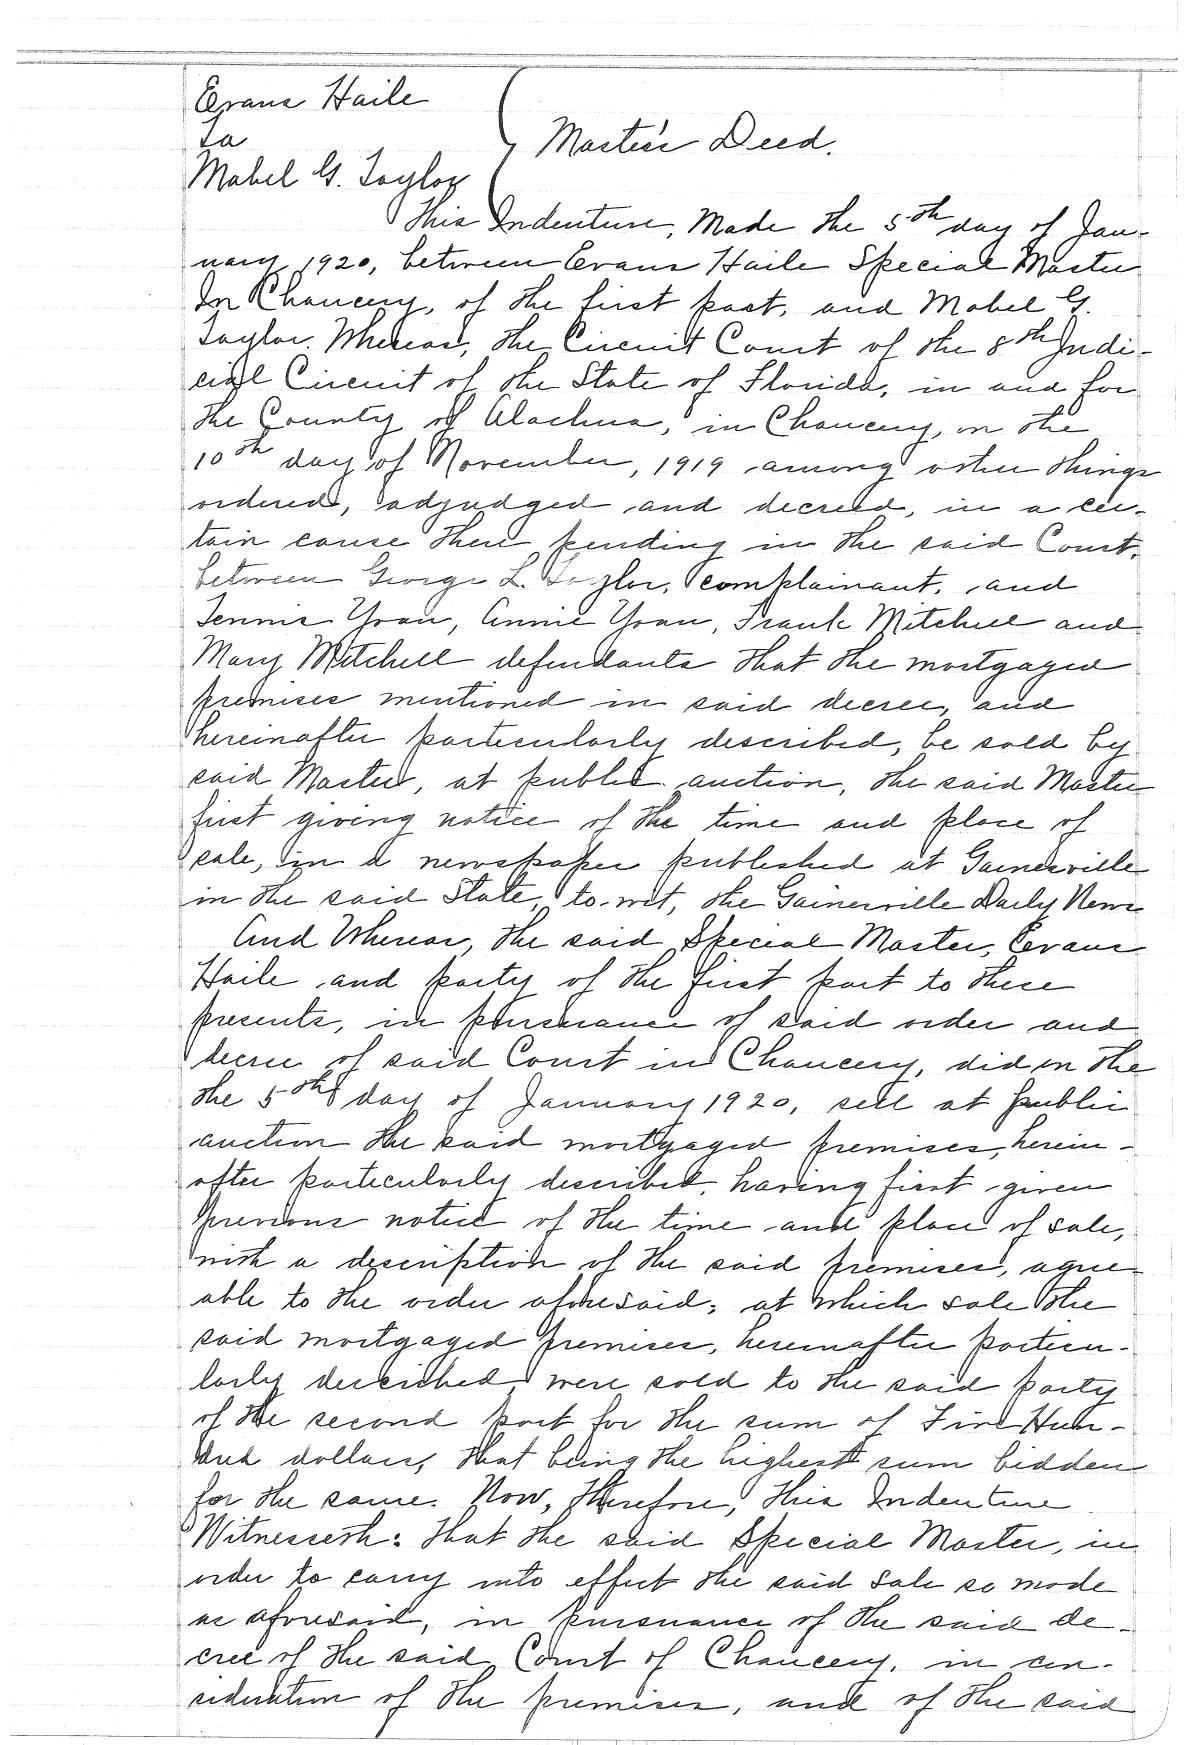 Evans Haile
To
Master's Deed.
Mabel G. Taylor
This Indenture, Made the 5th day of Jan-
uary 1920, between Evans Haile Special Master
In Chancery, of the first part, and Mabel G.
Taylor. Whereas, the Circuit Court of the 8th Judi-
cial Circuit of the State of Florida, in and for
the County of Alachua, in Chancery, on the
10th day of November, 1919 among other things
ordered, adjudged and decreed, in a cer-
tain cause then pending in the said Court.
between George L. Taylor, complainant, and
Tennis Yvan, Annie Yvan, Frank Mitchell and
Mary Mitchell defendants that the mortgaged
premises mentioned in said decree, and
hereinafter particularly described, be sold by
said Master, at public auction, the said Master
first giving notice of the time and place of
sale, in a newspaper published at Gainesville
in the said State, to-wit, the Gainesville Daily News
And Whereas, the said Special Master, Evans
Haile and party of the first part to these
presents, in pursuance of said order and
decree of said Court in Chancery, did on the
the 5th day of January 1920, sell at public
auction the said mortgaged premises, herein-
after particularly described, having first given
previous notice of the time and place of sale,
with a description of the said premises, agree-
able to the order aforesaid; at which sale the
said mortgaged premises, hereinafter particu-
larly described were sold to the said party
of the second part for the sum of Five Hun-
dred dollars, that being the highest sum bidden
for the same. Now, therefore, this Indenture
Witnesseth: that the said Special Master, in
order to carry into effect the said sale so made
as aforesaid, in pursuance of the said de-
cree of the said Court of Chancery, in con-
sideration of the premises, and of the said